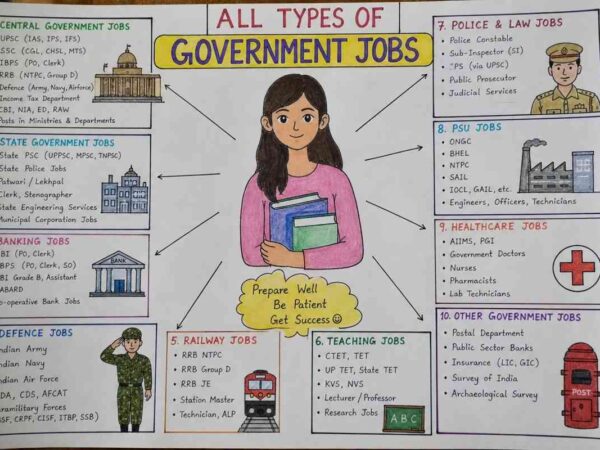 ALL TYPES OF
GOVERNMENT JOBS
CENTRAL GOVERNMENT JOBS
UPSC (IAS, IPS, IFS)
SSC (CGL, CHSL, MTS)
IBPS (PO, Clerk)
RRB (NTPC, Group D)
Defence (Army, Navy, Airforce)
Income Tax Department
CBI, NIA, ED, RAW
Posts in Ministries & Departments
STATE GOVERNMENT JOBS
State PSC (UPPSC, MPSC, TNPSC)
State Police Jobs
Patwari / Lekhpal
Clerk, Stenographer
State Engineering Services
Municipal Corporation Jobs
BANKING JOBS
BI (PO, Clerk)
BPS (PO, Clerk, SO)
BI Grade B, Assistant
ABARD
o-operative Bank Jobs
BANK
DEFENCE JOBS
ndian Army
ndian Navy
ndian Air Force
DA, CDS, AFCAT
aramilitary Forces
SF, CRPF, CISF, ITBP, SSB)
5. RAILWAY JOBS
• RRB NTPC
• RRB Group D
• RRB JE
• Station Master
• Technician, ALP
6. TEACHING JOBS
• CTET, TET
• UP TET, State TET
• KVS, NVS
• Lecturer / Professor
• Research Jobs
ABC
Prepare Well
Be Patient
Get Success ☺
7. POLICE & LAW JOBS
• Police Constable
• Sub-Inspector (SI)
PS (via UPSC)
• Public Prosecutor
• Judicial Services
8. PSU JOBS
• ONGC
• BHEL
• NTPC
• SAIL
• IOCL, GAIL, etc.
• Engineers, Officers, Technicians
9. HEALTHCARE JOBS
• AIIMS, PGI
• Government Doctors
• Nurses
• Pharmacists
• Lab Technicians
10. OTHER GOVERNMENT JOBS
• Postal Department
• Public Sector Banks
• Insurance (LIC, GIC)
• Survey of India
• Archaeological Survey
POST